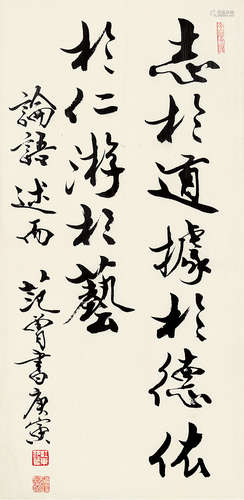 志於道據於德依
於仁游於藝
論語述而
范曾書庚寅